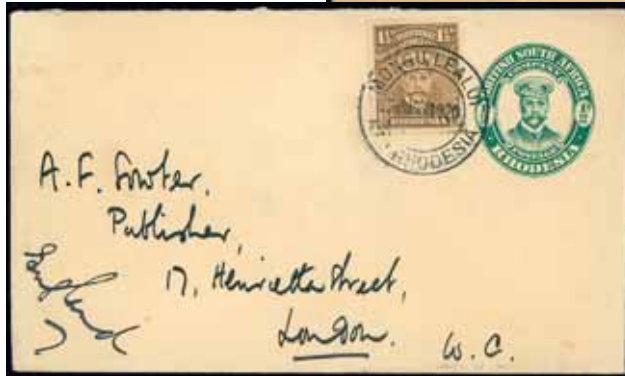 1½ 1½
MONGU-LEALUI
1920
RHODESIA
BRITISH SOUTH AFRICA
COMPANY
RHODESIA
A. F. Fowler,
Publisher,
17, Henrietta Street,
London. W. C.
England